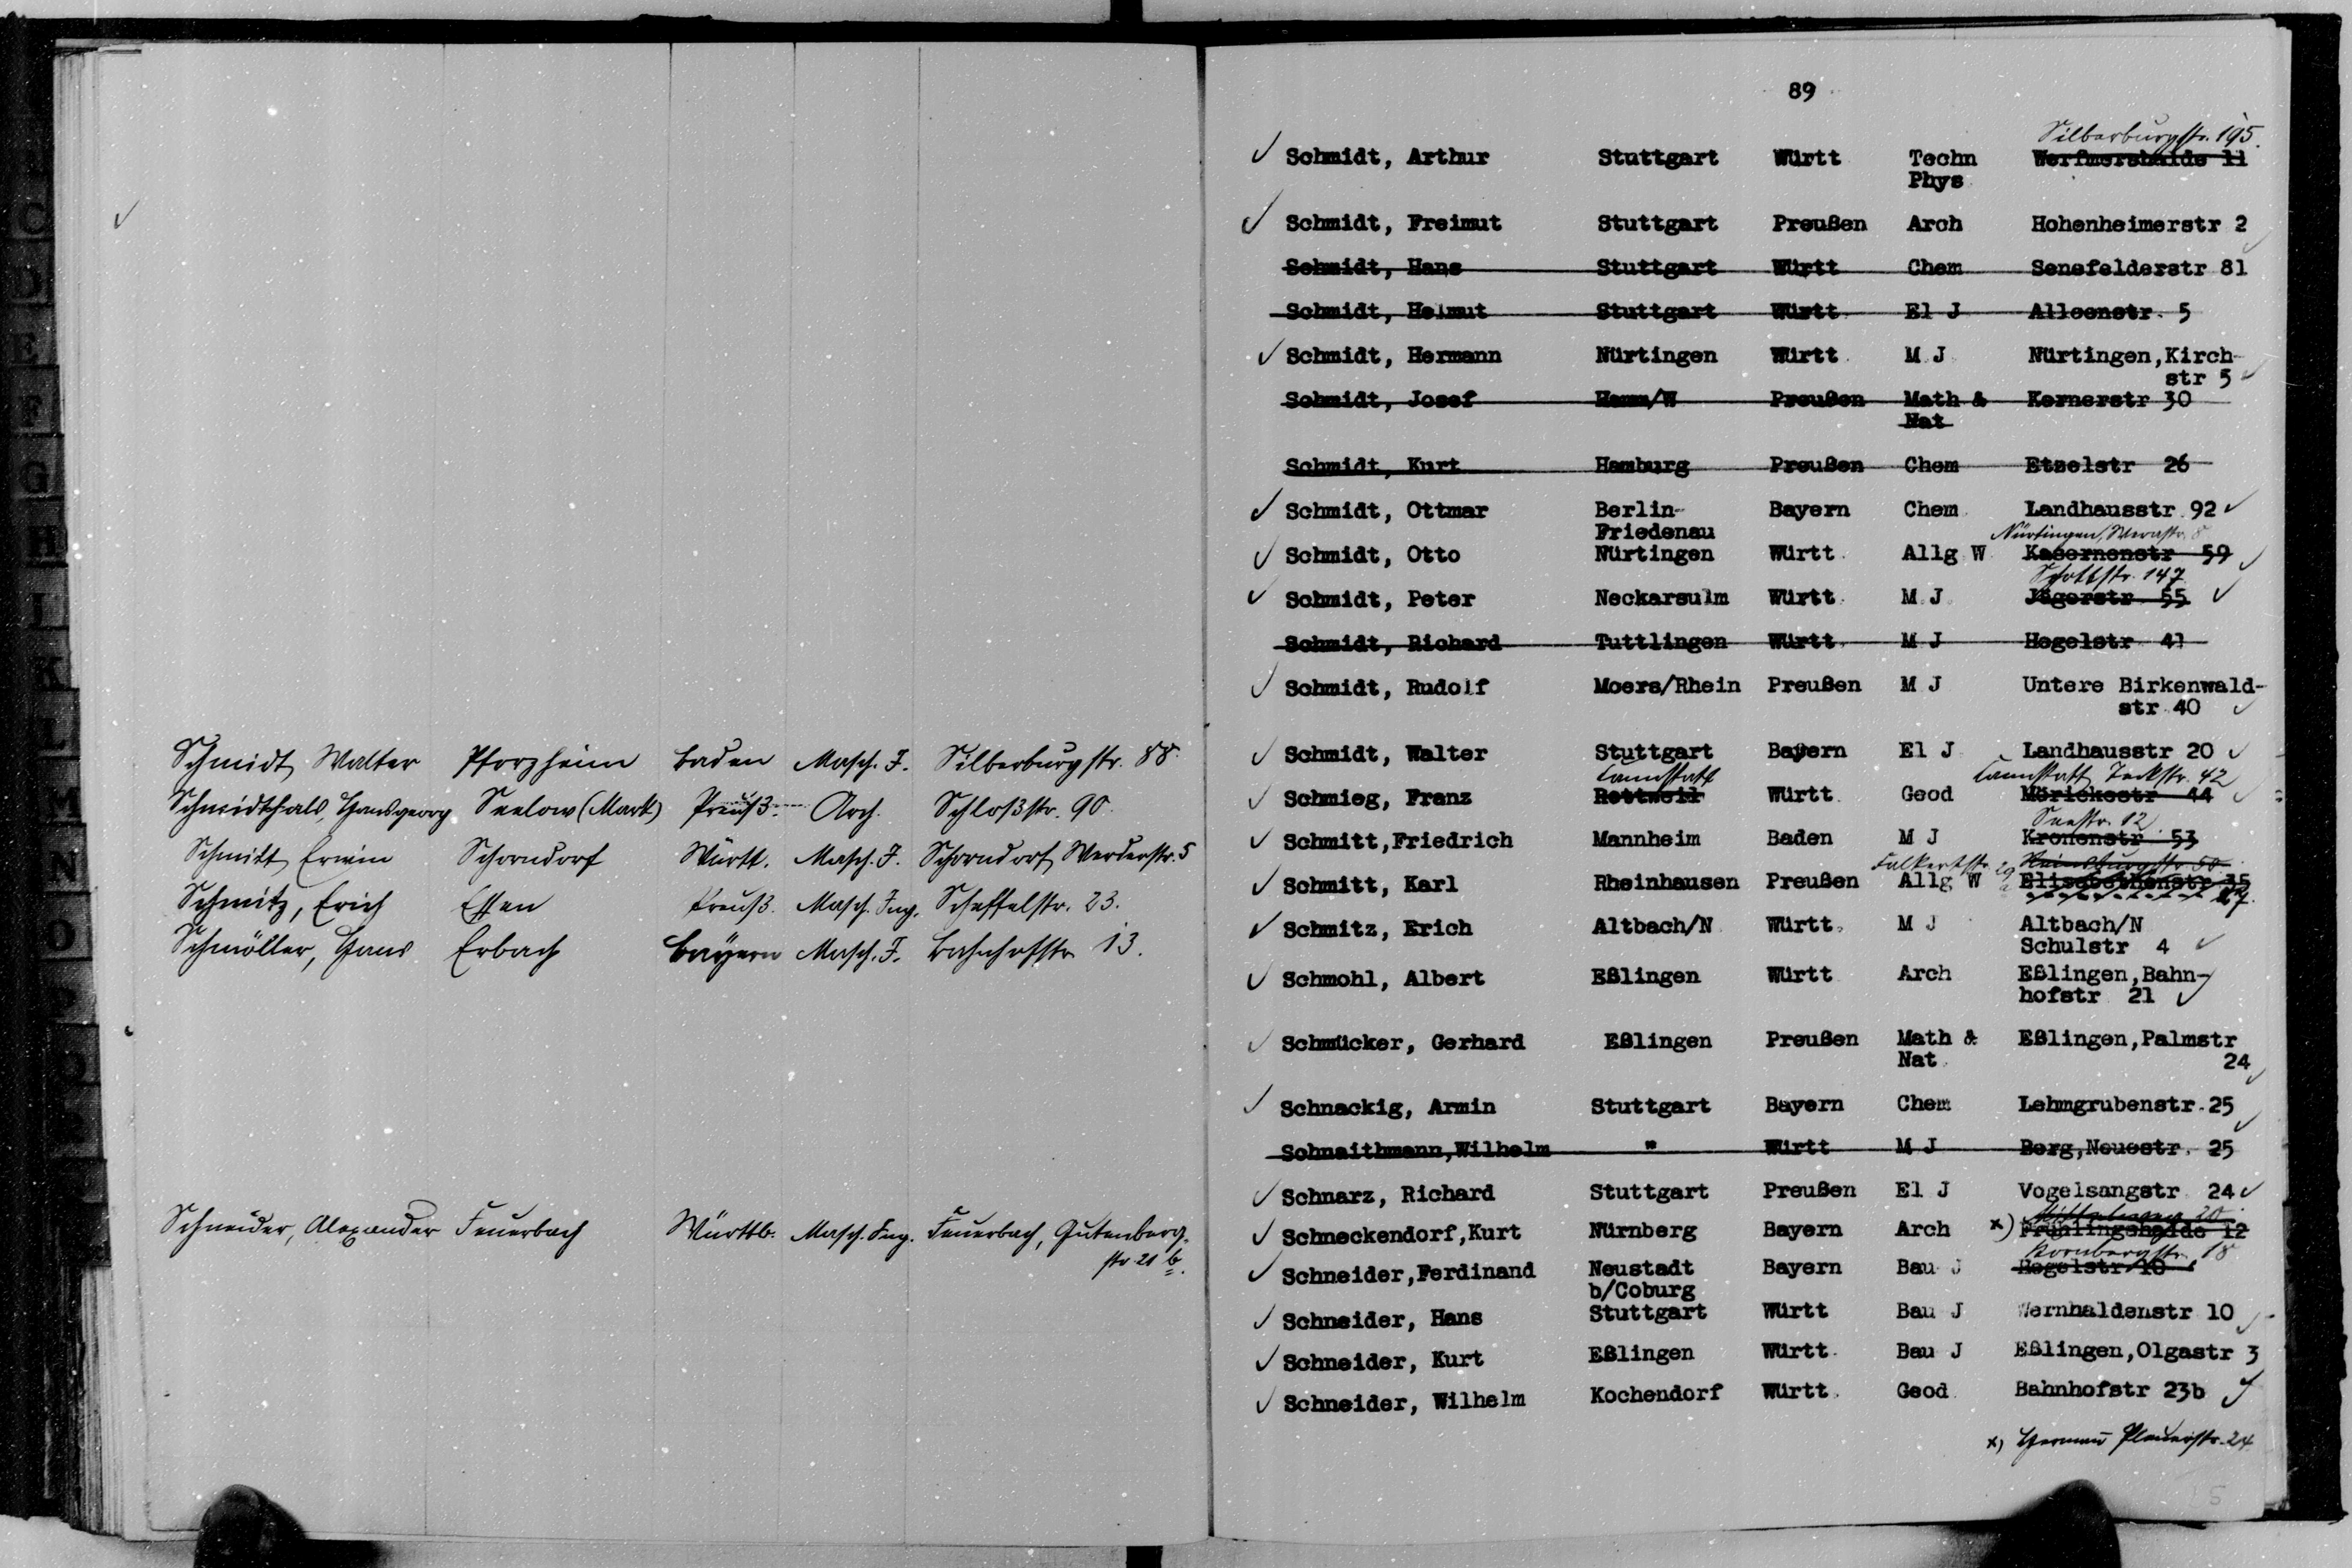 C
D
E
F
G
H
I
K
L
M
N
O
P
Schmidt Walter Pforzheim Baden Masch. I. Silberburgstr. 88.
Schmidthals, Hansgeorg Seelow (Mark) Preuß. Arch. Schloßstr. 90.
Schmitt Erwin Schorndorf Württ. Masch. I. Schorndorf, Werderstr. 5
Schmitz, Erich Essen Preuß. Masch. Ing. Scheffelstr. 23.
Schmöller, Hans Erbach Bayern Masch. I. Bahnhofstr. 13.
Schneider, Alexander Feuerbach Württb. Masch. Ing. Feuerbach, Gutenberg-
str. 21 b.
89
Silberburgstr. 195.
Schmidt, Arthur Stuttgart Württ Techn Werfmershalde 11
Phys
Schmidt, Freimut Stuttgart Preußen Arch Hohenheimerstr 2
Schmidt, Hans Stuttgart Württ Chem Senefelderstr 81
Schmidt, Helmut Stuttgart Württ El J Alleenstr. 5
Schmidt, Hermann Nürtingen Württ M J Nürtingen,Kirch-
str 5
Schmidt, Josef Hamm/W Preußen Math & Kernerstr 30
Nat
Schmidt, Kurt Hamburg Preußen Chem Etzelstr 26
Schmidt, Ottmar Berlin- Bayern Chem Landhausstr 92
Friedenau
Nürtingen, Werastr. 8
Schmidt, Otto Nürtingen Württ Allg W Kasernenstr 59
Schottstr. 147
Schmidt, Peter Neckarsulm Württ M J Jägerstr 55
Schmidt, Richard Tuttlingen Württ M J Hegelstr 41
Schmidt, Rudolf Moers/Rhein Preußen M J Untere Birkenwald-
str 40
Schmidt, Walter Stuttgart Bayern El J Landhausstr 20
Cannstatt Cannstatt, Teckstr. 42
Schmieg, Franz Rottweil Württ Geod Mörikestr 44
Seestr. 12
Schmitt,Friedrich Mannheim Baden M J Kronenstr 53
Falkertstr. 29 Reinsburgstr. 58
Schmitt, Karl Rheinhausen Preußen Allg W Elisabethenstr 35
Schmitz, Erich Altbach/N Württ. M J Altbach/N
Schulstr 4
Schmohl, Albert Eßlingen Württ Arch Eßlingen,Bahn-
hofstr 21
Schmücker, Gerhard Eßlingen Preußen Math & Eßlingen,Palmstr
Nat 24
Schnackig, Armin Stuttgart Bayern Chem Lehmgrubenstr.25
Schnaithmann,Wilhelm " Württ M J Berg,Neuestr. 25
Schnarz, Richard Stuttgart Preußen El J Vogelsangstr 24
20
Schneckendorf,Kurt Nürnberg Bayern Arch x) Frühlingshalde 12
Hornbergstr. 18
Schneider,Ferdinand Neustadt Bayern Bau J Hegelstr 10
b/Coburg
Schneider, Hans Stuttgart Württ Bau J Wernhaldenstr 10
Schneider, Kurt Eßlingen Württ Bau J Eßlingen,Olgastr 3
Schneider, Wilhelm Kochendorf Württ Geod Bahnhofstr 23b
x) Hermann Pleuerstr. 24